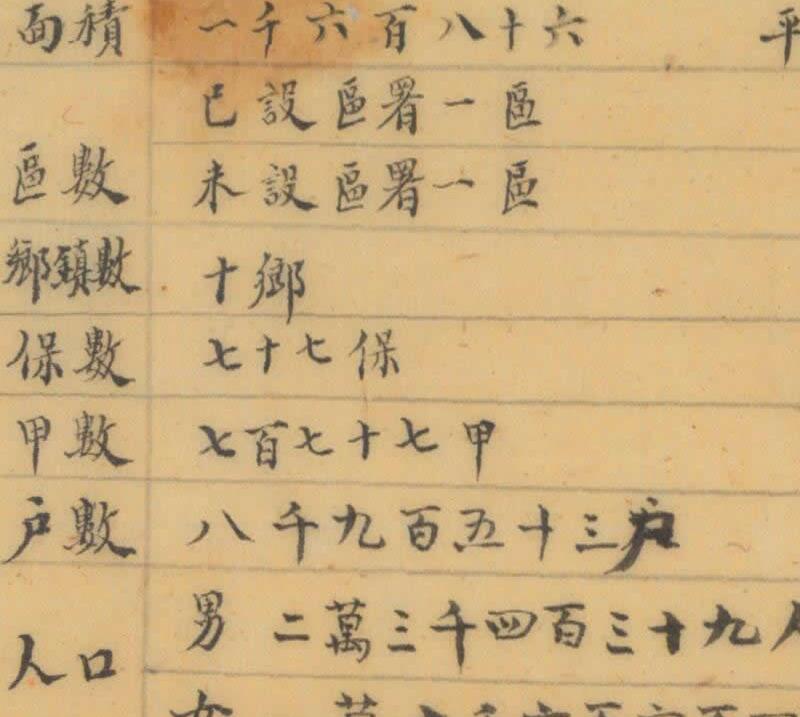 面積 一千六百八十六 平
已設區署一區
區數 未設區署一區
鄉鎮數 十鄉
保數 七十七保
甲數 七百七十七甲
户數 八千九百五十三户
男 二萬三千四百三十九人
人口
女